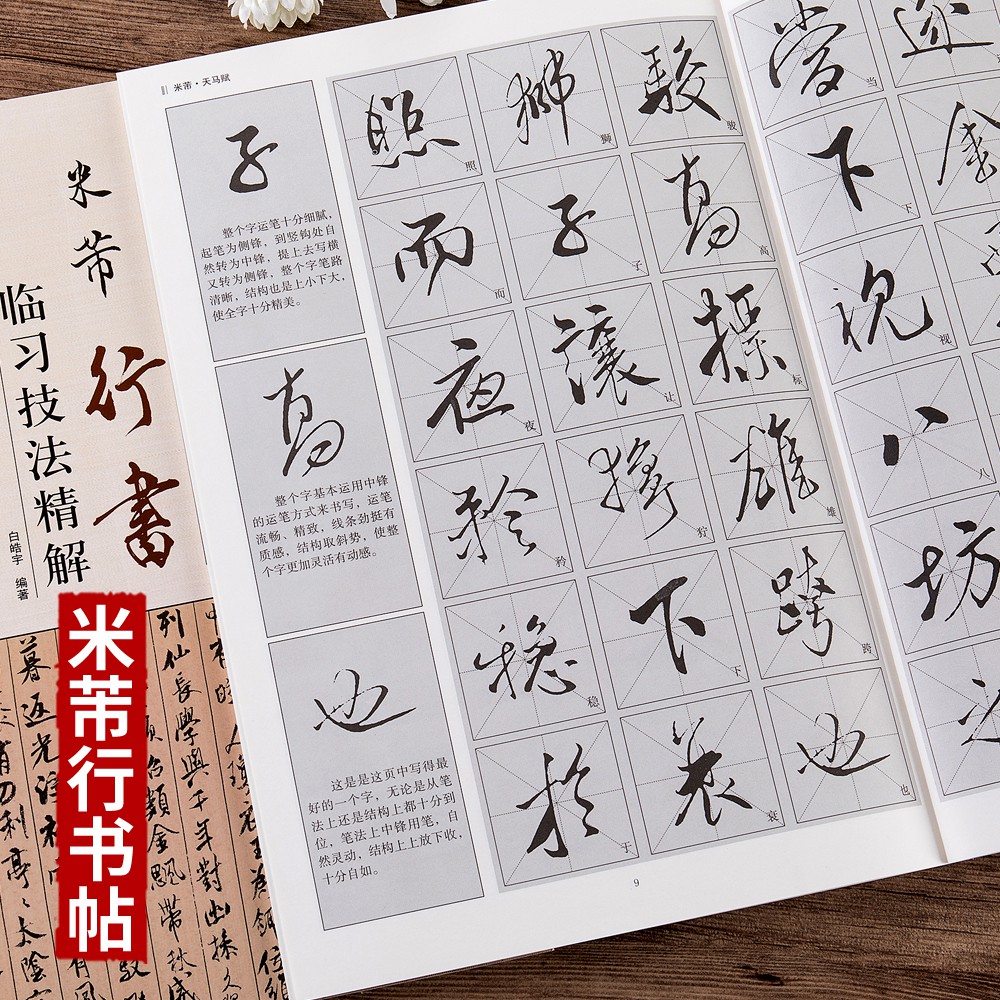 米芾
行書
临习技法精解
白皓宇 编著
米芾行书帖
米芾·天马赋
子
整个字运笔十分细腻，
起笔为侧锋，到竖钩处自
然转为中锋，提上去写横
又转为侧锋，整个字笔路
清晰，结构也是上小下大，
使全字十分精美。
高
整个字基本运用中锋
的运笔方式来书写，运笔
流畅、精致，线条劲挺有
质感，结构取斜势，使整
个字更加灵活有动感。
也
这是是这页中写得最
好的一个字，无论是从笔
法上还是结构上都十分到
位，笔法上中锋用笔，自
然灵动，结构上上放下收，
十分自如。
照 照 獅 狮 駿 骏
而 而 子 子 高 高
夜 夜 讓 让 標 标
矜 矜 獰 狞 雄 雄
穩 稳 下 下 跨 跨
於 于 衰 衰 也 也
9
當 当 逐
下 下 金
視 视
八 八
坊
列仙長學與千年對此揉
暮返光
類金
利亭
太陰